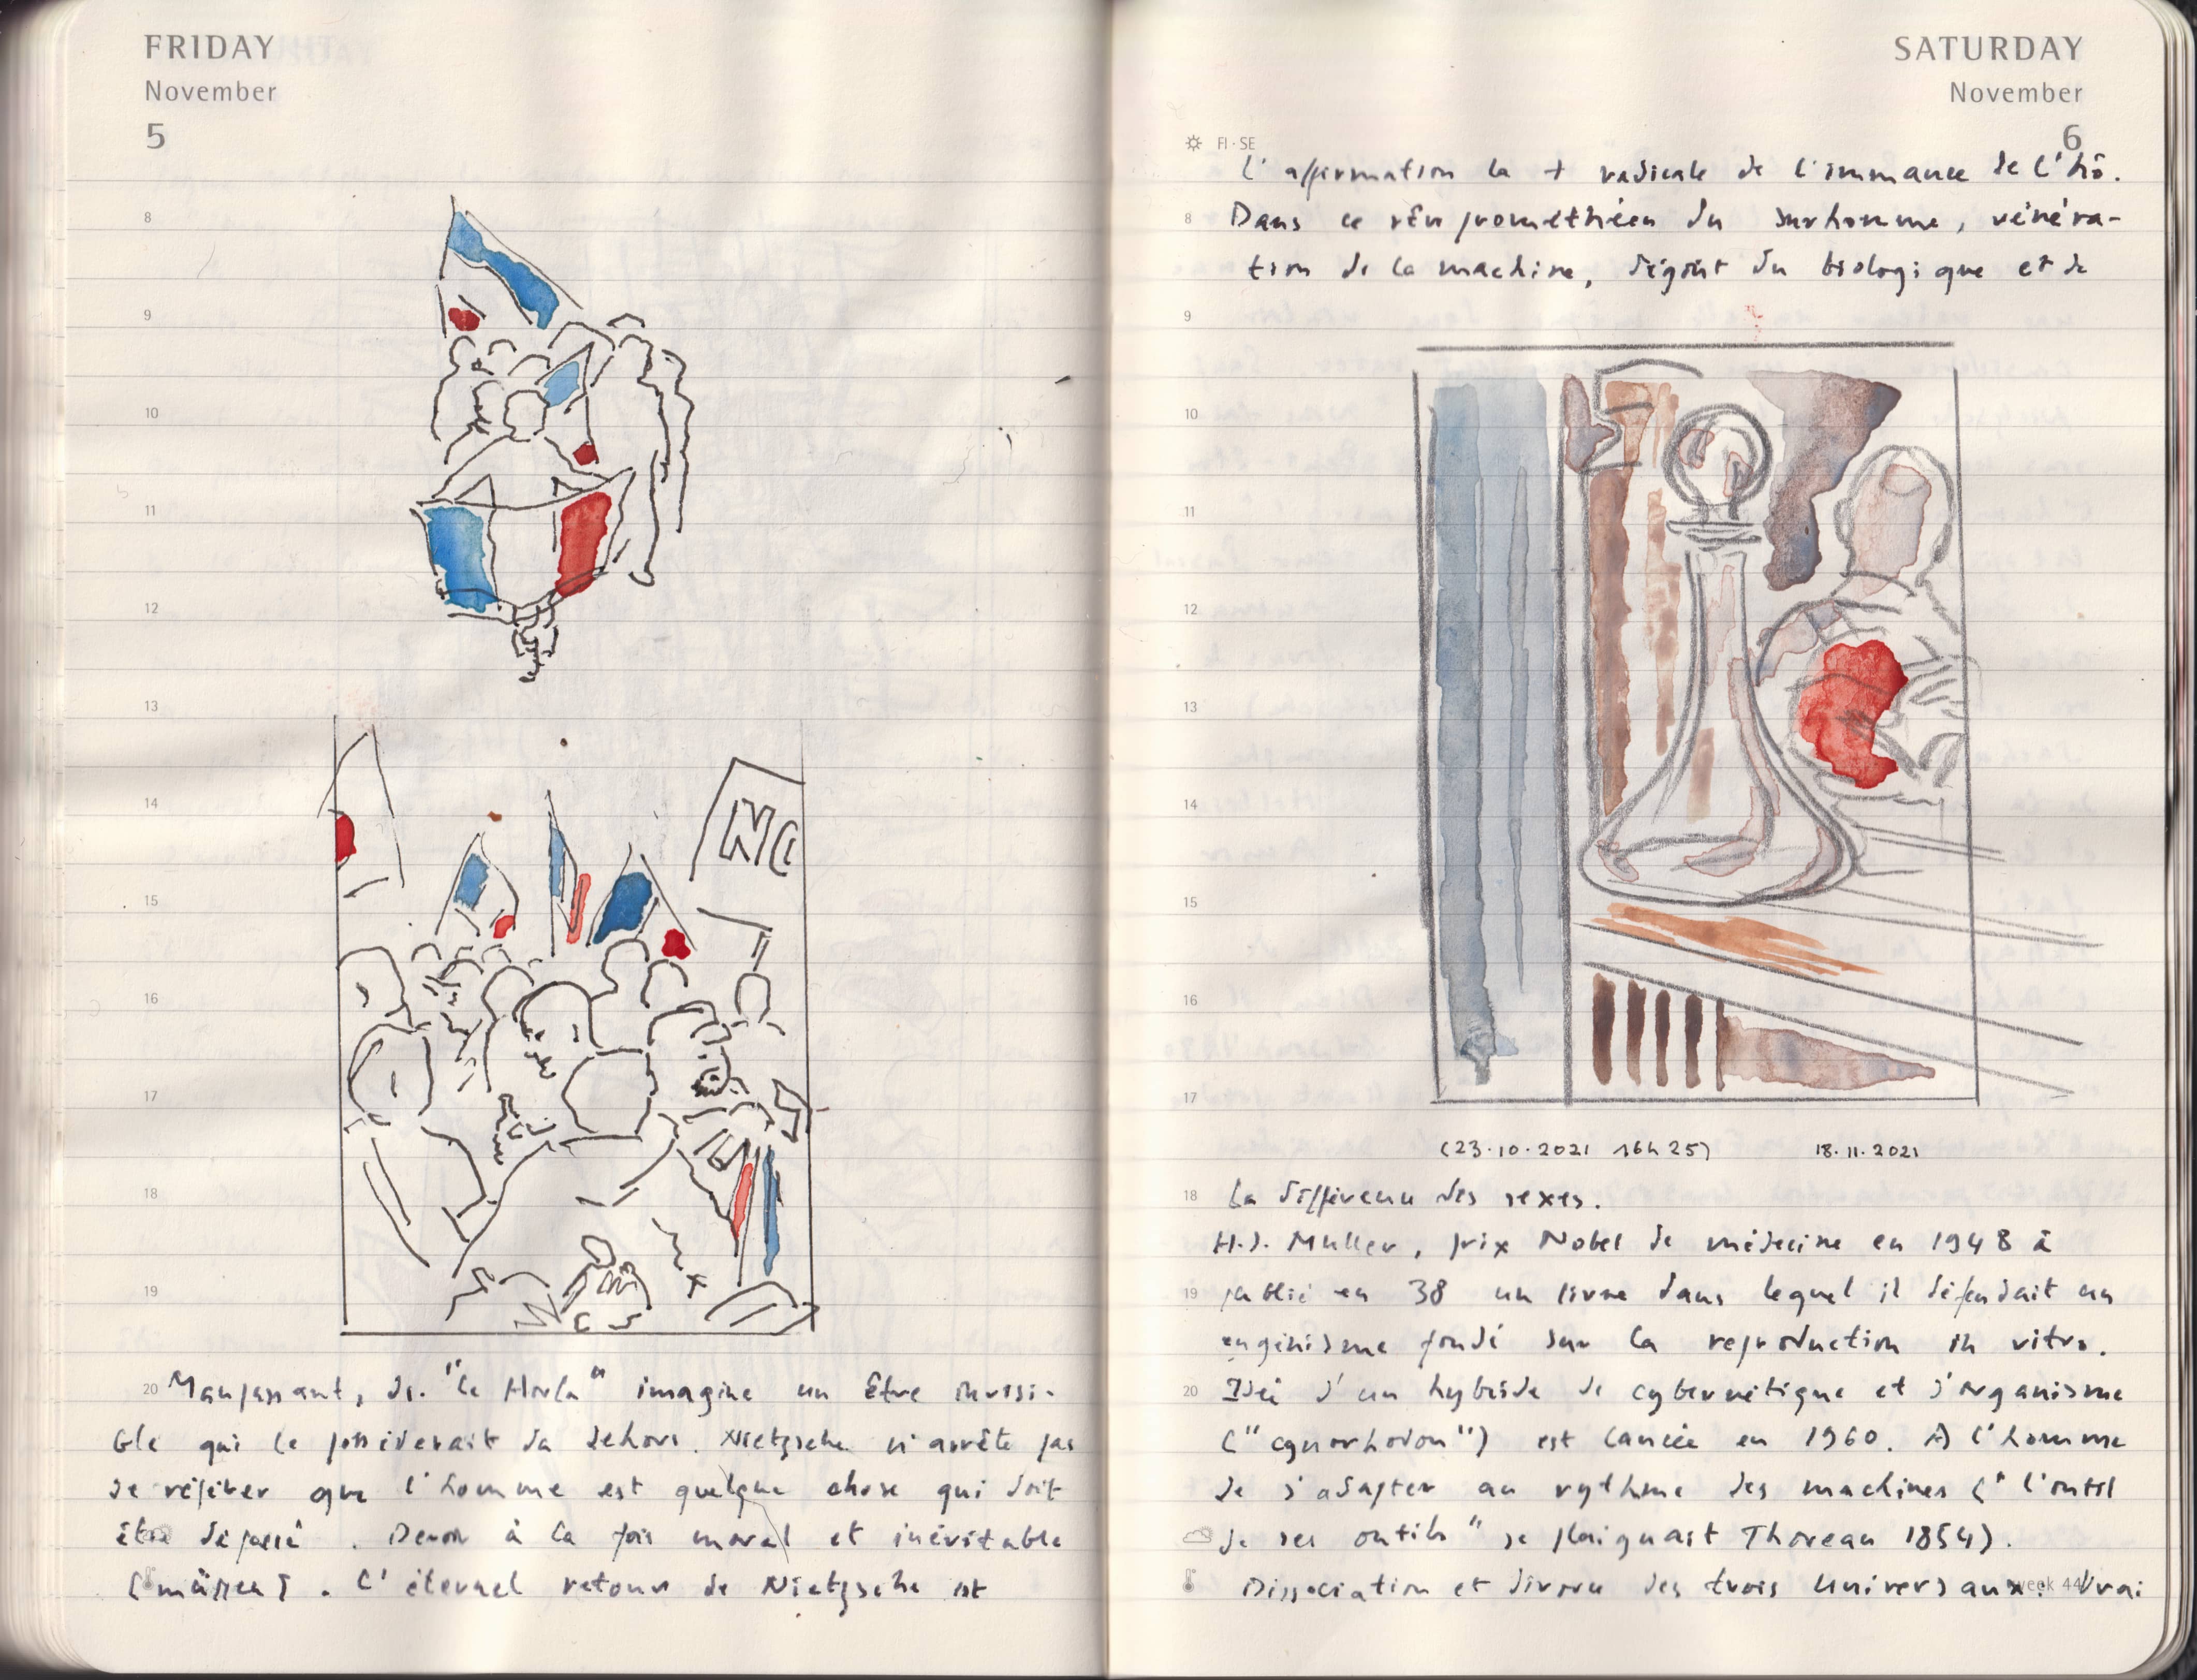 FRIDAY
November
5
8
9
10
11
12
13
14
NC
15
16
17
18
19
20 Maupassant, ds. "le Horla" imagine un Être invisi-
ble qui le possèderait du dehors. Nietzsche n'arrête pas
de répéter que l'homme est quelque chose qui doit
être dépassé. Devoir à la fois moral et inévitable
[müssen]. L'éternel retour de Nietzsche est
SATURDAY
November
6
FI · SE
l'affirmation la + radicale de l'immance de l'hô.
8 Dans ce rêve prométhéen du surhomme, vénéra-
tion de la machine, dégoût du biologique et de
9
10
11
12
13
14
15
16
17
(23.10.2021 16h25) 18.11.2021
18 La différence des sexes.
H.J. Muller, prix Nobel de médecine en 1948 a
19 publié en 38 un livre dans lequel il défendait un
eugénisme fondé sur la reproduction in vitro.
20 Idée d'un hybride de cybernétique et d'organisme
("cynorhodon") est lancée en 1960. A l'homme
de s'adapter au rythme des machines ("l'outil
de ses outils" se plaignait Thoreau 1854).
Dissociation et divorce des trois Universaux: Vrai
week 44